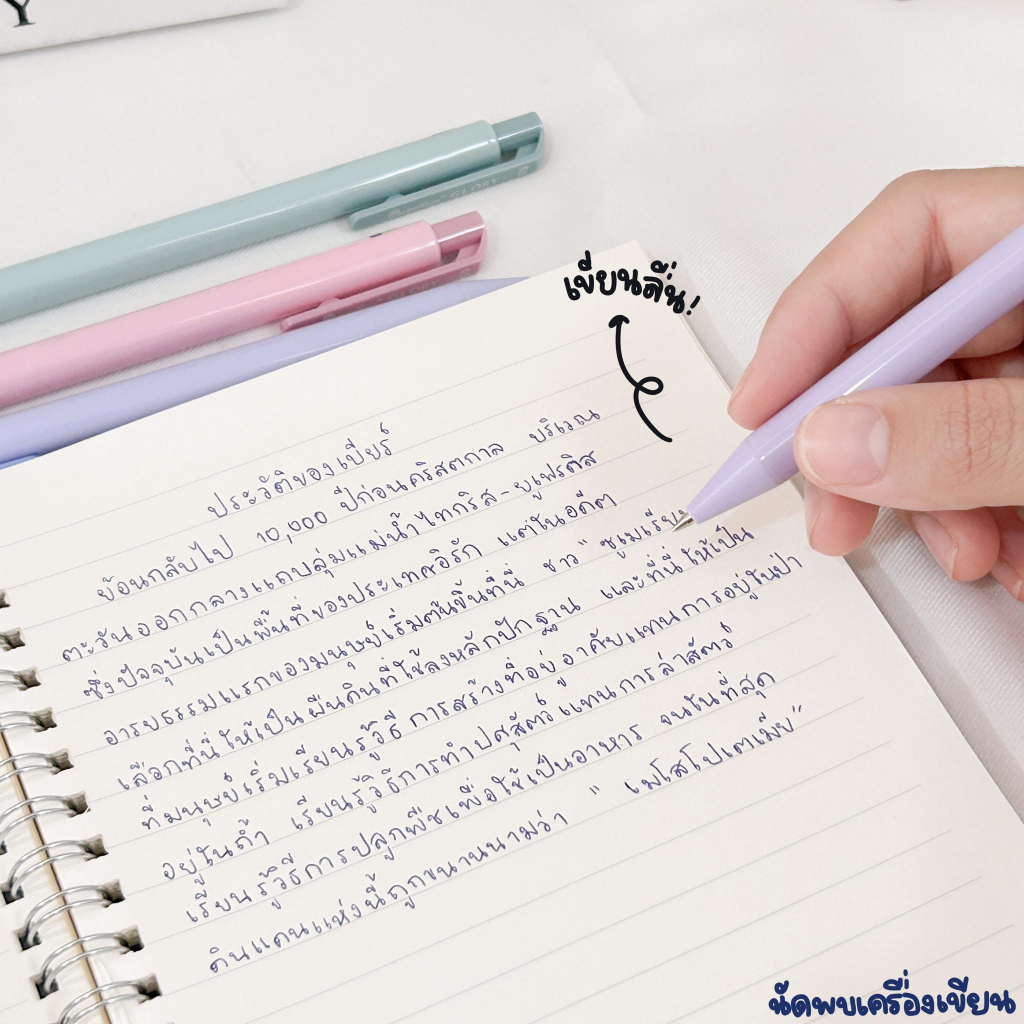 Y
GLORY
เขียนลื่น!
ประวัติของเบียร์
ย้อนกลับไป 10,000 ปีก่อนคริสตกาล บริเวณ
ตะวันออกกลางแถบลุ่มแม่น้ำไทกริส-ยูเฟรติส
ซึ่งปัจจุบันเป็นพื้นที่ของประเทศอิรัก แต่ในอดีต
อารยธรรมแรกของมนุษย์เริ่มต้นขึ้นที่นี่ ชาว "ซูเมเรียน
เลือกที่นี่ให้เป็นผืนดินที่ใช้ลงหลักปักฐาน และที่นี่ให้เป็น
ที่มนุษย์เริ่มเรียนรู้วิธี การสร้างที่อยู่อาศัยแทนการอยู่ในป่า
อยู่ในถ้ำ เรียนรู้วิธีการทำปศุสัตว์แทนการล่าสัตว์
เรียนรู้วิธีการปลูกพืชเพื่อใช้เป็นอาหาร จนในที่สุด
ดินแดนแห่งนี้ถูกขนานนามว่า " เมโสโปเตเมีย"
นัดพบเครื่องเขียน